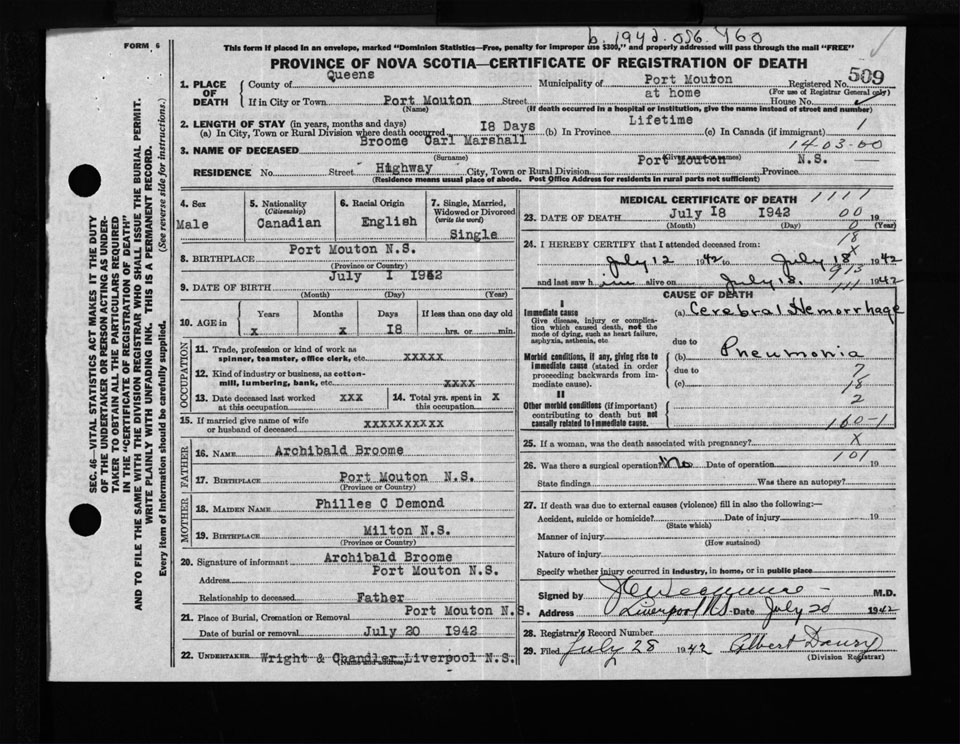 b. 1942.056.460
FORM 6
This form if placed in an envelope, marked "Dominion Statistics—Free, penalty for improper use $300," and properly addressed will pass through the mail "FREE"
PROVINCE OF NOVA SCOTIA—CERTIFICATE OF REGISTRATION OF DEATH
1. PLACE OF DEATH
County of Queens Municipality of Port Mouton Registered No. 509
(For use of Registrar General only)
If in City or Town Port Mouton Street at home House No.
(Name) (If death occurred in a hospital or institution, give the name instead of street and number)
2. LENGTH OF STAY (in years, months and days)
(a) In City, Town or Rural Division where death occurred 18 Days (b) In Province Lifetime (c) In Canada (if immigrant) 1
3. NAME OF DECEASED Broome Carl Marshall 1403-00
(Surname) (Given name or names)
RESIDENCE No. Street Highway City, Town or Rural Division Port Mouton Province N.S.
(Residence means usual place of abode. Post Office Address for residents in rural parts not sufficient)
4. Sex
Male
5. Nationality
(Citizenship)
Canadian
6. Racial Origin
English
7. Single, Married, Widowed or Divorced
(write the word)
Single
8. BIRTHPLACE Port Mouton N.S.
(Province or Country)
9. DATE OF BIRTH July 1 1942
(Month) (Day) (Year)
10. AGE in
Years Months Days If less than one day old
X X 18 hrs. or min.
OCCUPATION
11. Trade, profession or kind of work as spinner, teamster, office clerk, etc. XXXXX
12. Kind of industry or business, as cotton-mill, lumbering, bank, etc. XXXX
13. Date deceased last worked at this occupation XXX
14. Total yrs. spent in this occupation X
15. If married give name of wife or husband of deceased XXXXXXXXXX
FATHER
16. NAME Archibald Broome
17. BIRTHPLACE Port Mouton N.S.
(Province or Country)
MOTHER
18. MAIDEN NAME Philles C Demond
19. BIRTHPLACE Milton N.S.
(Province or Country)
20. Signature of informant Archibald Broome
Address Port Mouton N.S.
Relationship to deceased Father
21. Place of Burial, Cremation or Removal Port Mouton N.S.
Date of burial or removal July 20 1942
22. UNDERTAKER Wright & Chandler Liverpool N.S.
(Name and address)
MEDICAL CERTIFICATE OF DEATH 1111
23. DATE OF DEATH July 18 1942 00 19
(Month) (Day) (Year)
0
24. I HEREBY CERTIFY that I attended deceased from:
18
X
July 12 1942 to July 18 1942
913
and last saw him alive on July 18. 1942
1111
CAUSE OF DEATH
I
Immediate cause
Give disease, injury or complication which caused death, not the mode of dying, such as heart failure, asphyxia, asthenia, etc
(a) Cerebral Hemorrhage
due to
Morbid conditions, if any, giving rise to immediate cause (stated in order proceeding backwards from immediate cause).
(b) Pneumonia
due to 7
(c) 18
2
II
Other morbid conditions (if important) contributing to death but not causally related to immediate cause.
160-1
25. If a woman, was the death associated with pregnancy? X
101
26. Was there a surgical operation? No Date of operation 19
State findings Was there an autopsy?
27. If death was due to external causes (violence) fill in also the following:—
Accident, suicide or homicide? Date of injury 19
(State which)
Manner of injury
(How sustained)
Nature of injury
Specify whether injury occurred in industry, in home, or in public place
Signed by M.D.
Address Liverpool NS Date July 20 1942
28. Registrar's Record Number
29. Filed July 28 1942 Albert
(Division Registrar)
SEC. 46—VITAL STATISTICS ACT MAKES IT THE DUTY
OF THE UNDERTAKER OR PERSON ACTING AS UNDER-
TAKER TO OBTAIN ALL THE PARTICULARS REQUIRED
IN THE "CERTIFICATE OF REGISTRATION OF DEATH"
AND TO FILE THE SAME WITH THE DIVISION REGISTRAR WHO SHALL ISSUE THE BURIAL PERMIT.
WRITE PLAINLY WITH UNFADING INK. THIS IS A PERMANENT RECORD.
Every item of Information should be carefully supplied. (See reverse side for instructions.)